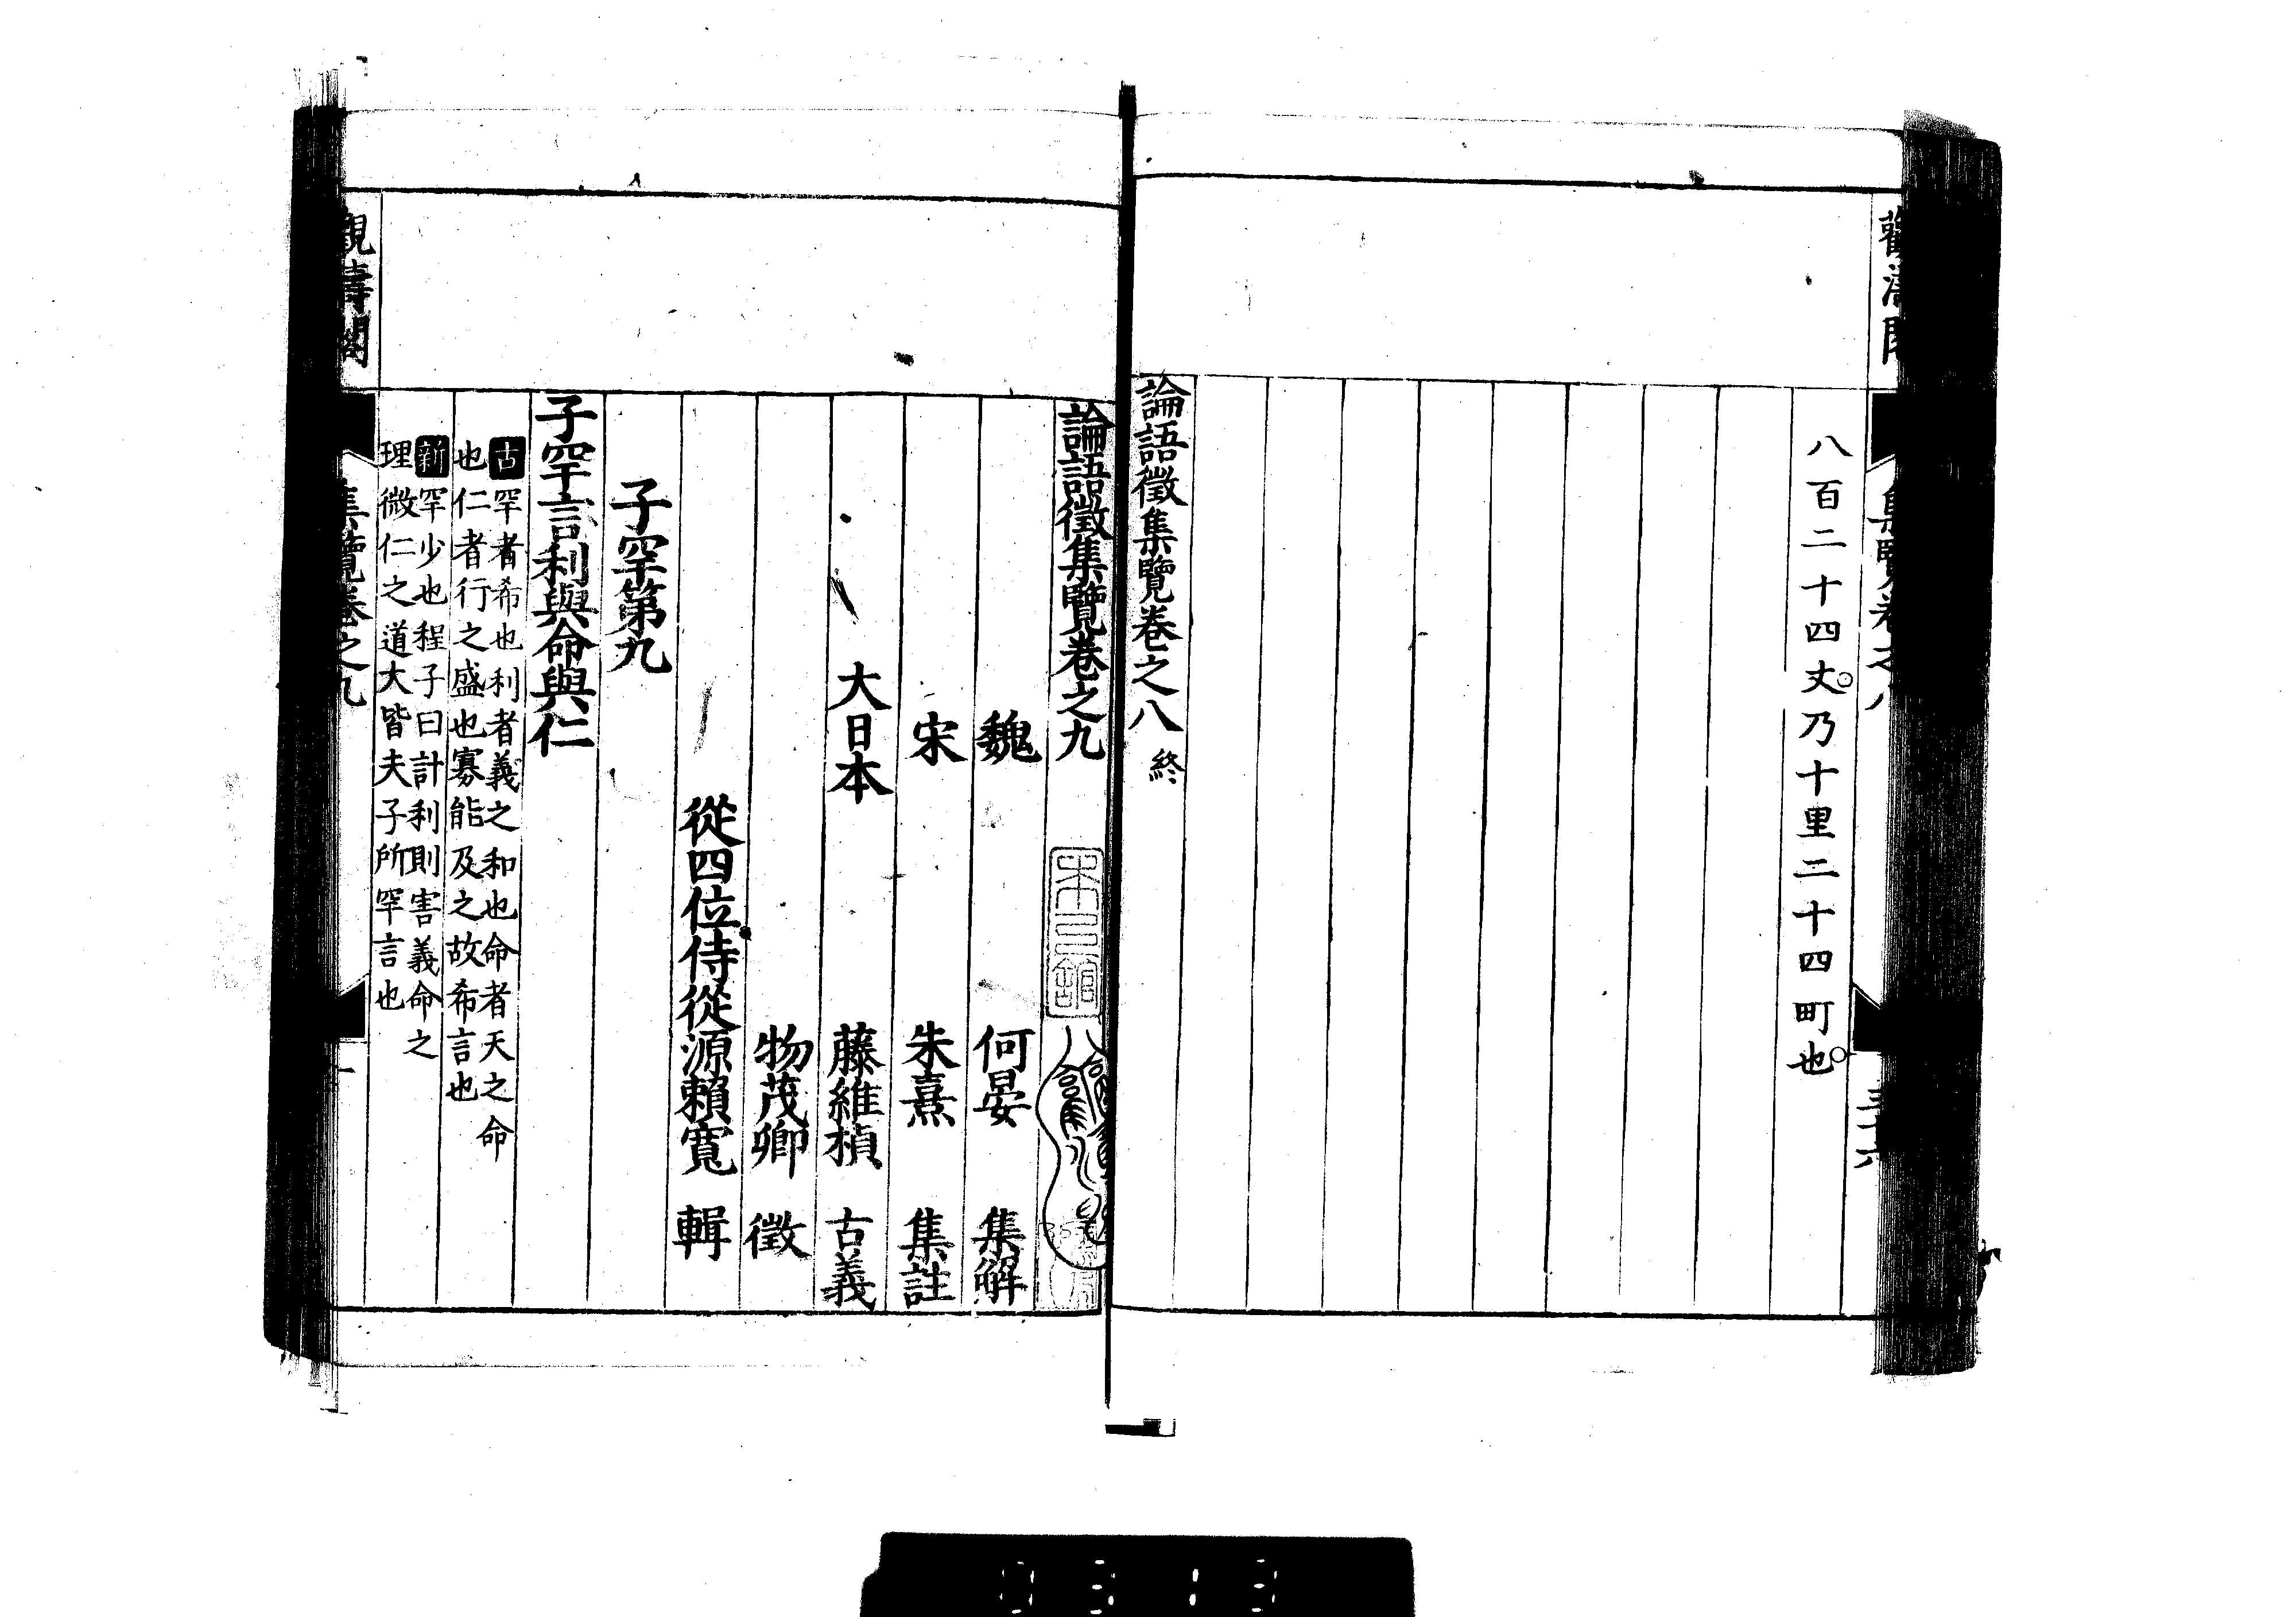 八百二十四丈。乃十里二十四町也。
論語徵集覽卷之八 終
論語徵集覽卷之九
魏 何晏 集解
宋 朱熹 集註
大日本 藤維楨 古義
物茂卿 徵
從四位侍從源賴寬 輯
子罕第九
子罕言利與命與仁
古 罕者希也利者義之和也命者天之命
也仁者行之盛也寡能及之故希言也
新 罕少也程子曰計利則害義命之
理微仁之道大皆夫子所罕言也
觀濤閣 集覽卷之九 一
0313